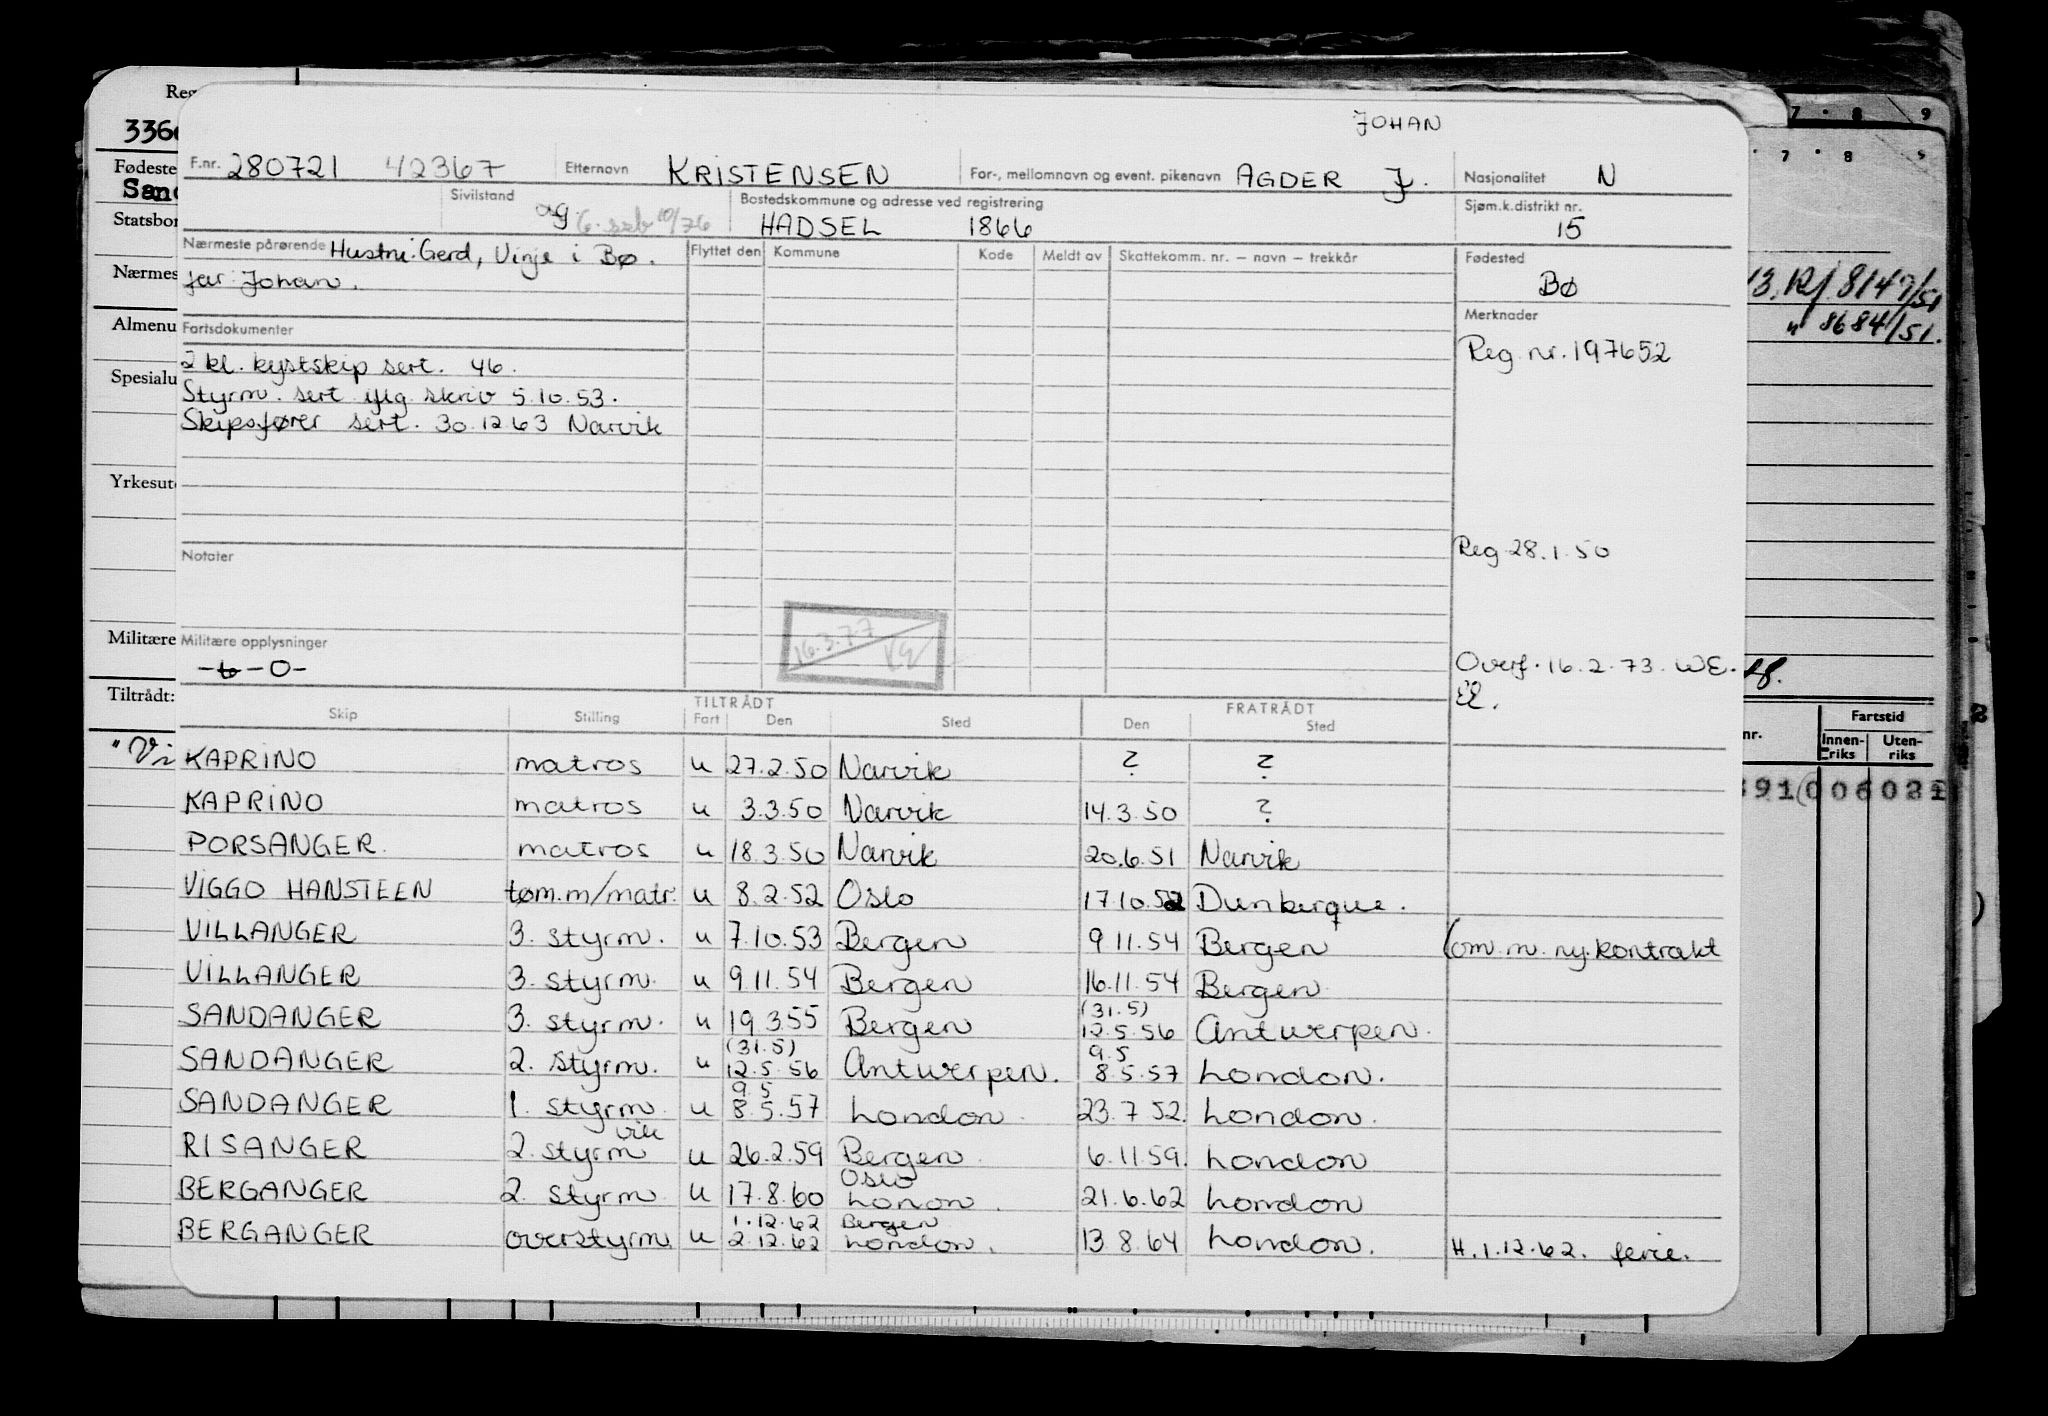 JOHAN
F.nr. 280721 42367 Etternavn KRISTENSEN For-, mellomnavn og event. pikenavn AGDER J. Nasjonalitet N
Sivilstand ug Bostedskommune og adresse ved registrering HADSEL 1866 Sjøm.k.distrikt nr. 15
Nærmeste pårørende Hustru: Gerd, Vinje i Bø.
far: Johan.
Flyttet den Kommune Kode Meldt av Skattekomm. nr. – navn – trekkår
Fødested
Bø
Fartsdokumenter
2 kl. kystskip sert. 46.
Styrm. sert iflg skriv 5.10.53.
Skipsfører sert. 30.12.63 Narvik
Merknader
Reg. nr. 197652
Reg 28.1.50
Overf. 16.2.73. WE.
Notater
16.3.77
Militære opplysninger
-0-
TILTRÅDT FRATRÅDT
Skip Stilling Fart Den Sted Den Sted
KAPRINO matros u 27.2.50 Narvik ? ?
KAPRINO matros u 3.3.50 Narvik 14.3.50 ?
PORSANGER. matros u 18.3.50 Narvik 20.6.51 Narvik
VIGGO HANSTEEN tøm.m/matr. u 8.2.52 Oslo 17.10.52 Dunkerque.
VILLANGER 3. styrm. u 7.10.53 Bergen 9.11.54 Bergen (om. m. ny. kontrakt
VILLANGER 3. styrm. u 9.11.54 Bergen 16.11.54 Bergen
SANDANGER 3. styrm. u 19.3.55 Bergen (31.5) 12.5.56 Antwerpen.
SANDANGER 2. styrm. u (31.5) 12.5.56 Antwerpen. 9.5 8.5.57 London.
SANDANGER 1. styrm. u 9.5 8.5.57 London. 23.7.52. London.
RISANGER 2. styrm vik u 26.2.59 Bergen. 6.11.59. London
BERGANGER 2. styrm. u 17.8.60 Oslo Lonon. 21.6.62 London
BERGANGER overstyrm. u 1.12.62 2.12.62 Bergen London. 13.8.64 London. H. 1.12.62. ferie.
Reg
336
Fødeste
Sand
Statsbor
Nærmes
Almenu
Spesialu
Yrkesut
Militære
Tiltrådt:
"Vi
7 8 9
7 8
13, R/ 8147/51
" 8684/51.
nr.
Fartstid
Innen-
riks
Uten-
riks